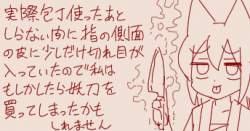 実際包丁使ったあと
しらない間に指の側面
の皮に少しだけ切れ目が
入っていたので私は
もしかしたら妖刀を
買ってしまったかも
しれません